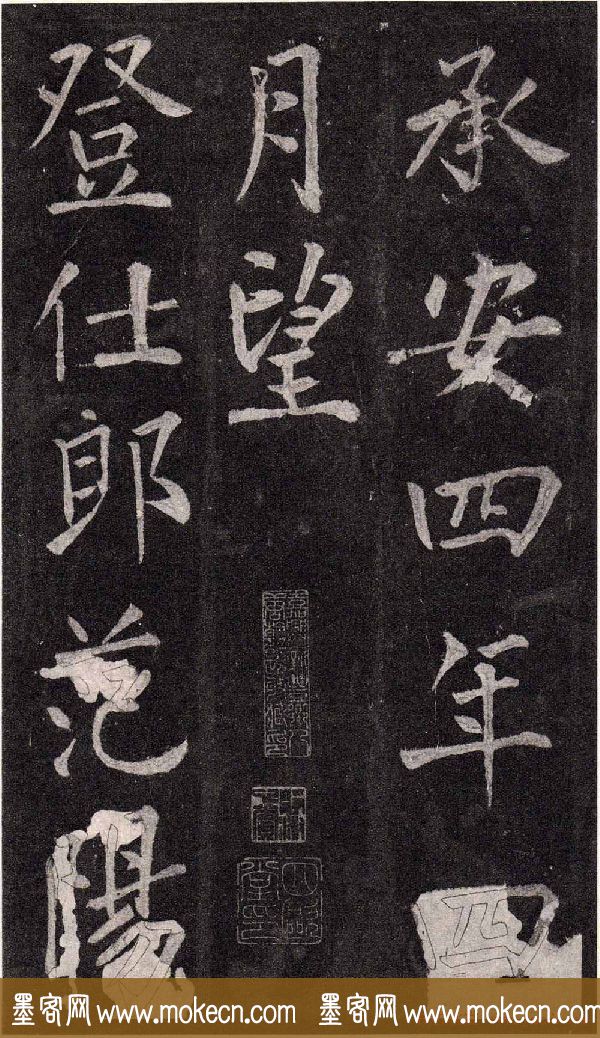 承安四年四
月望
登仕郎范陽
墨客网 www.mokecn.com 墨客网 www.mokecn.com